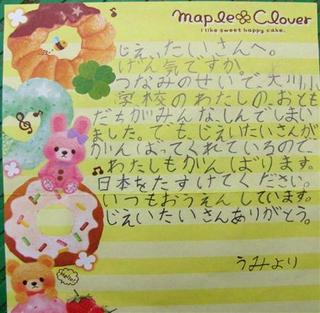 maple Clover
I like sweet happy cake.
じえいたいさんへ。
げん気ですか。
つなみのせいで、大川小
学校のわたしの、おとも
だちがみんな、しんでしまい
ました。でも、じえいたいさんが
がんばってくれているので、
わたしもがんばります。
日本をたすけてください。
いつもおうえんしています。
じえいたいさんありがとう。
うみより
Hello!